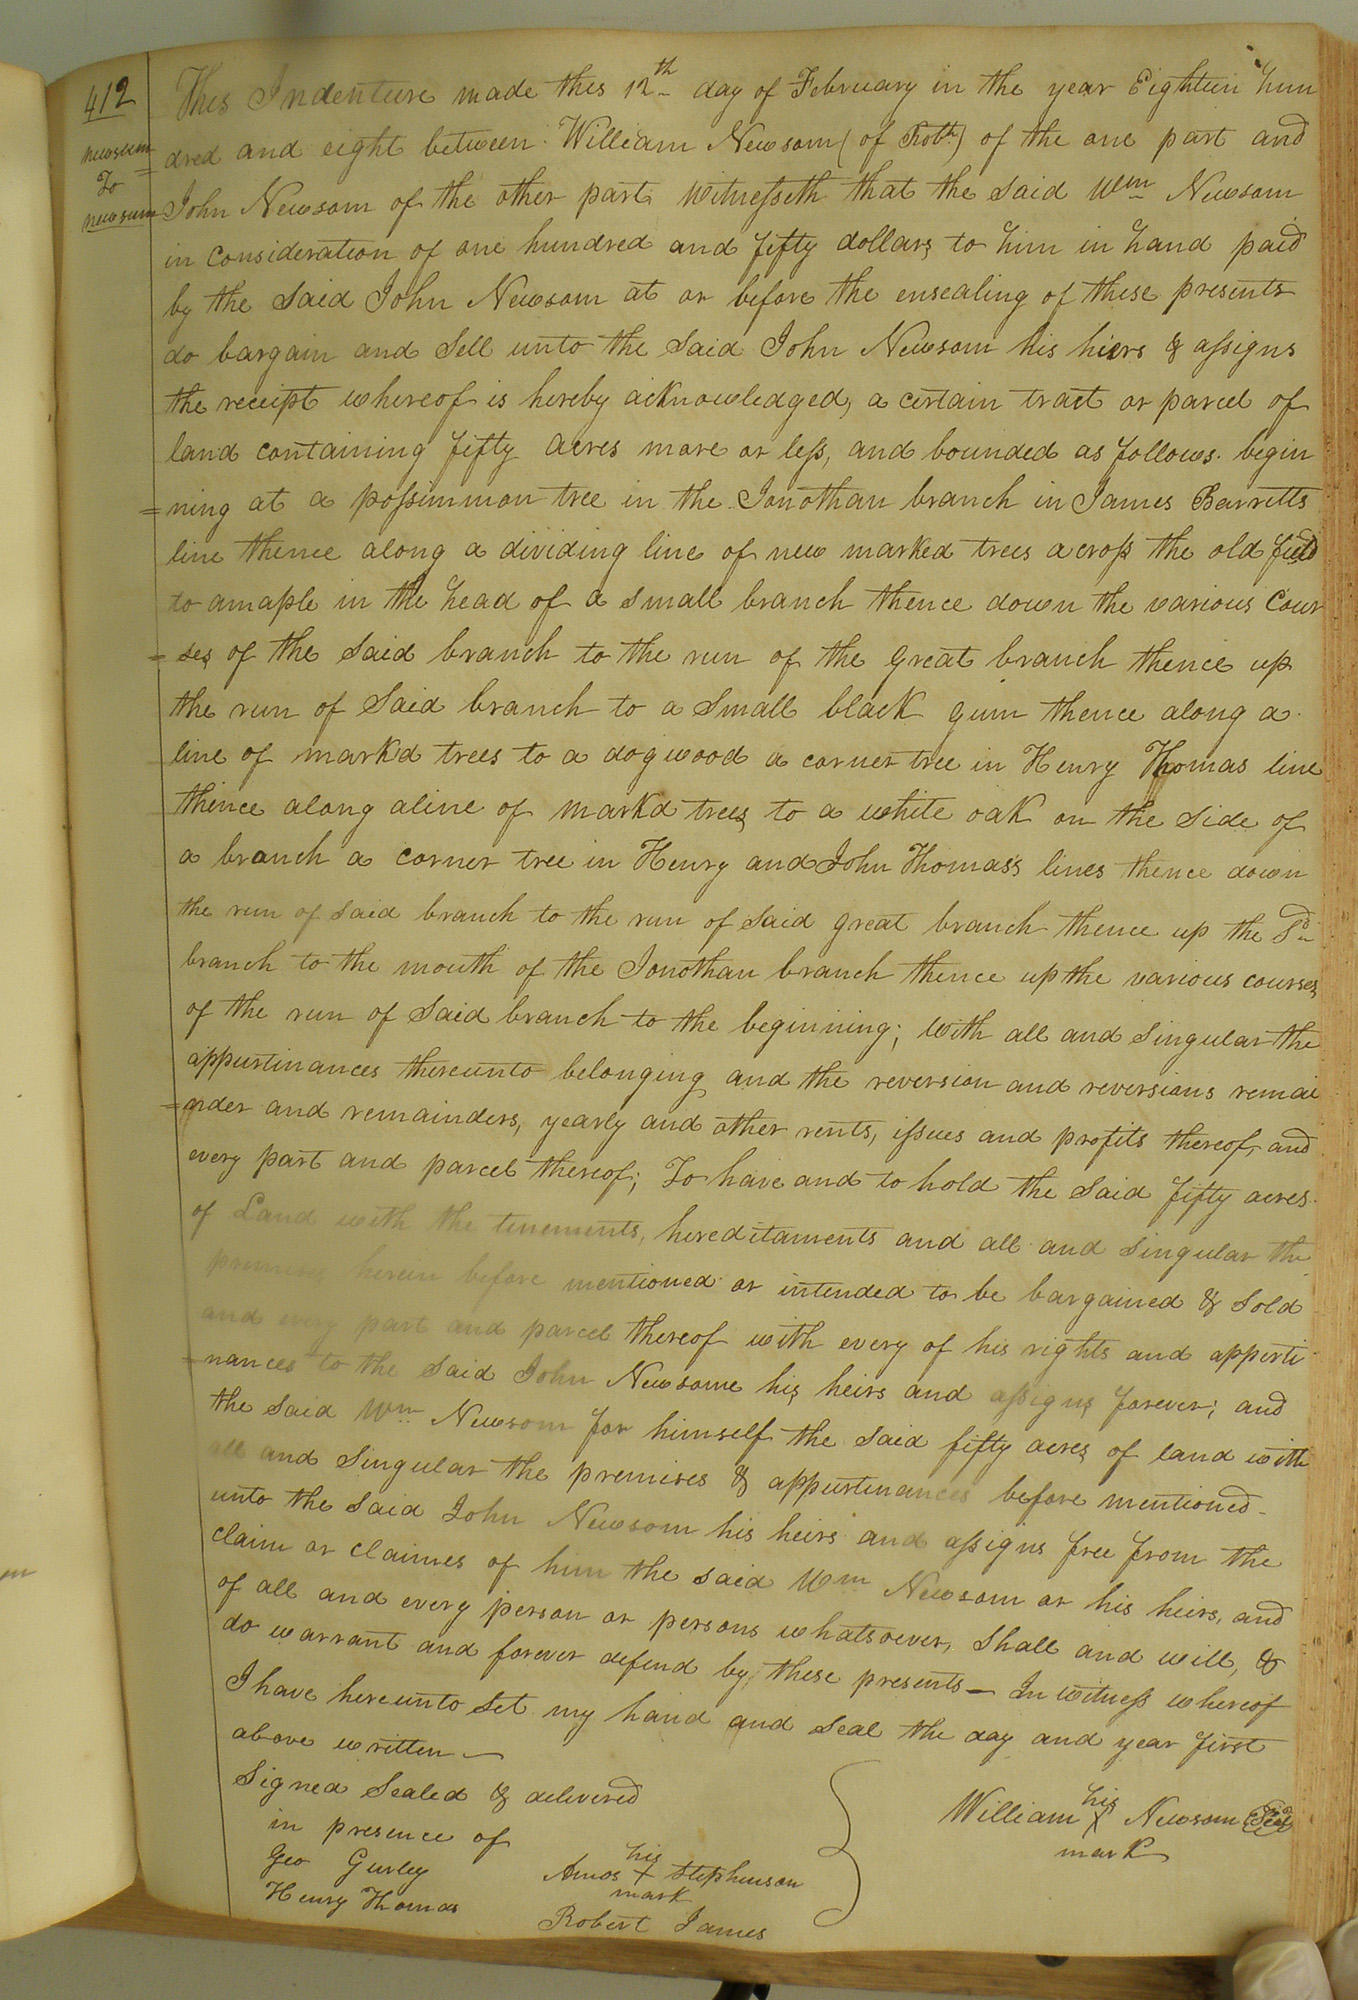 412
newsum
To
newsum
This Indenture made this 12th day of February in the year Eighteen hun
dred and eight between William Newsom (of Robt.) of the one part and
John Newsom of the other part Witnesseth that the said Wm Newsom
in consideration of one hundred and fifty dollars to him in hand paid
by the said John Newsom at or before the ensealing of these presents
do bargain and sell unto the said John Newsom his hiers & assigns
the receipt whereof is hereby acknowledged, a certain tract or parcel of
land containing fifty acres more or less, and bounded as follows. begin
=ning at a possimmon tree in the Jonothan branch in James Barretts
line thence along a dividing line of new marked trees across the old field
to amaple in the head of a small branch thence down the various Cour
=ses of the said branch to the run of the great branch thence up
the run of said branch to a small black gum thence along a
line of markd trees to a dogwood a corner tree in Henry Thomas line
thence along aline of markd trees to a white oak on the side of
a branch a corner tree in Henry and John Thomas's lines thence down
the run of said branch to the run of said great branch thence up the Sd
branch to the mouth of the Jonothan branch thence up the various courses
of the run of said branch to the beginning; with all and singular the
appurtinances thereunto belonging and the reversion and reversions remai
=nder and remainders, yearly and other rents, issues and profits thereof, and
every part and parcel thereof; To have and to hold the said fifty acres
of Land with the tenements, hereditaments and all and singular the
premises herein before mentioned or intended to be bargained & sold
and every part and parcel thereof with every of his rights and apperti
=nances to the said John Newsome his heirs and assigns forever; and
the said Wm Newsom for himself the said fifty acres of land with
all and singular the premises & appurtenances before mentioned
unto the said John Newsom his heirs and assigns free from the
claim or claimes of him the said Wm Newsom or his heirs, and
of all and every person or persons whatsoever, shall and will, &
do warrant and forever defend by these presents — In witness whereof
I have hereunto set my hand and seal the day and year first
above written —
Signed Sealed & delivered
in presence of
Geo Gurley
Henry Thomas
his
Amos X Stephenson
mark
Robert James
his
William X Newsom Seal
mark